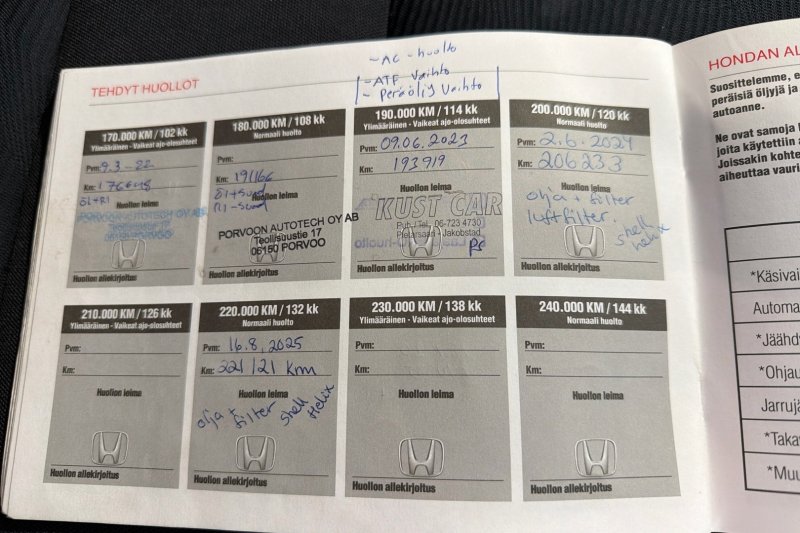 - AC - huolto
- ATF vaihto
- Peräöljy vaihto
TEHDYT HUOLLOT
170.000 KM / 102 kk
Ylimääräinen - Vaikeat ajo-olosuhteet
Pvm: 9.3-22
Km:
Huollon leima
PORVOON AUTOTECH OY AB
Teollisuustie 17
06150 PORVOO
Huollon allekirjoitus
180.000 KM / 108 kk
Normaali huolto
Pvm:
Km: 191166
Huollon leima
PORVOON AUTOTECH OY AB
Teollisuustie 17
06150 PORVOO
Huollon allekirjoitus
190.000 KM / 114 kk
Ylimääräinen - Vaikeat ajo-olosuhteet
Pvm: 09.06.2023
Km: 193919
Huollon leima
KUST CAR
Puh./Tel. 06-723 4730
Pietarsaari - Jakobstad
Huollon allekirjoitus
200.000 KM / 120 kk
Normaali huolto
Pvm: 2.6.2024
Km: 206233
Huollon leima
olja + filter
luftfilter.
shell
helix
Huollon allekirjoitus
210.000 KM / 126 kk
Ylimääräinen - Vaikeat ajo-olosuhteet
Pvm:
Km:
Huollon leima
Huollon allekirjoitus
220.000 KM / 132 kk
Normaali huolto
Pvm: 16.8.2025
Km: 221121 km
Huollon leima
olja +
filter
shell
Helix
Huollon allekirjoitus
230.000 KM / 138 kk
Ylimääräinen - Vaikeat ajo-olosuhteet
Pvm:
Km:
Huollon leima
Huollon allekirjoitus
240.000 KM / 144 kk
Normaali huolto
Pvm:
Km:
Huollon leima
Huollon allekirjoitus
HONDAN AL
Suosittelemme, e
peräisiä öljyjä ja
autoanne.
Ne ovat samoja l
joita käytettiin a
Joissakin kohte
aiheuttaa vauri
*Käsivai
Automa
*Jäähdy
*Ohjau
Jarrujä
*Taka
*Muu